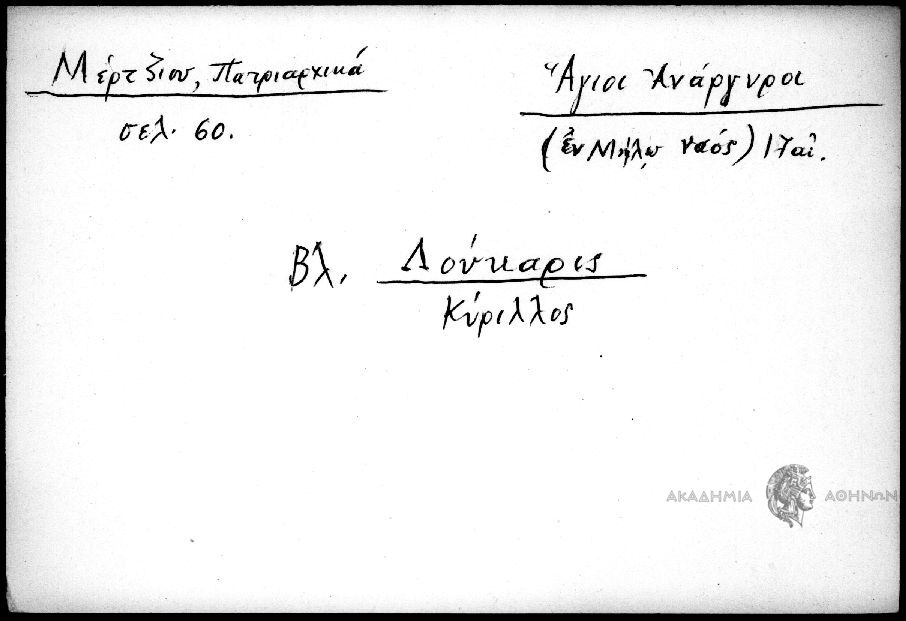 Μέρτζιου, Πατριαρχικά
σελ. 60.
Ἅγιοι Ἀνάργυροι
(ἐν Μήλῳ ναός) 17 αἰ.
Βλ. Λούκαρις
Κύριλλος
ΑΚΑΔΗΜΙΑ ΑΘΗΝΩΝ